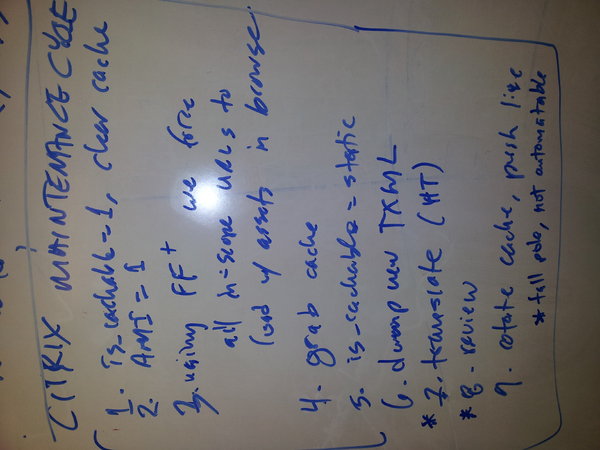 CITRIX MAINTENANCE CYCLE
1. is_cachable=1, clear cache
2. AMI = 1
3. using FF+ we force
all in-scope URLs to
load w/ assets in browser
4. grab cache
5. is_cachable = static
6. dump new TXML
* 7. translate (HT)
* 8. review
9. rotate cache, push live
* tall pole, not automatable